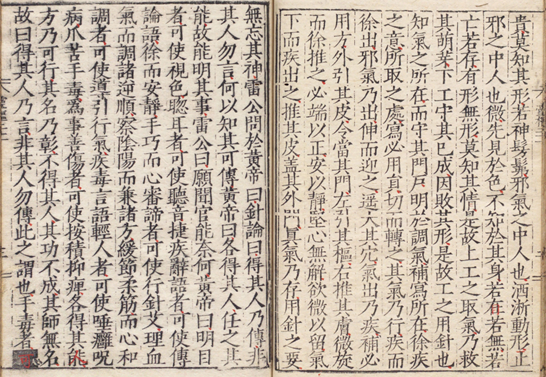 貴莫知其形若神髣髴邪氣之中人也洒淅動形正
邪之中人也微先見於色不知於其身若有若無若
亡若存有形無形莫知其情是故上工之取氣乃救
其萌芽下工守其已成因敗其形是故工之用針也
知氣之所在而守其門戶明於調氣補寫所在徐疾
之意所取之處寫必用員切而轉之其氣乃行疾而
徐出邪氣乃出伸而迎之遥大其穴氣出乃疾補必
用方外引其皮令當其門左引其樞右推其膚微旋
而徐推之必端以正安以靜堅心無解欲微以留氣
下而疾出之推其皮蓋其外真氣乃存用針之要
無忘其神雷公問於黃帝曰針論曰得其人乃傳非
其人勿言何以知其可傳黃帝曰各得其人任之其
能故能明其事雷公曰願聞官能奈何黃帝曰明目
者可使視色聰耳者可使聽音捷疾辭語者可使傳
論語徐而安靜手巧而心審諦者可使行針艾理血
氣而調諸逆順察陰陽而兼諸方緩節柔筋而心和
調者可使導引行氣疾毒言語輕人者可使唾癰呪
病爪苦手毒為事善傷者可使按積抑痺各得其能
方乃可行其名乃彰不得其人其功不成其師無名
故曰得其人乃言非其人勿傳此之謂也手毒者